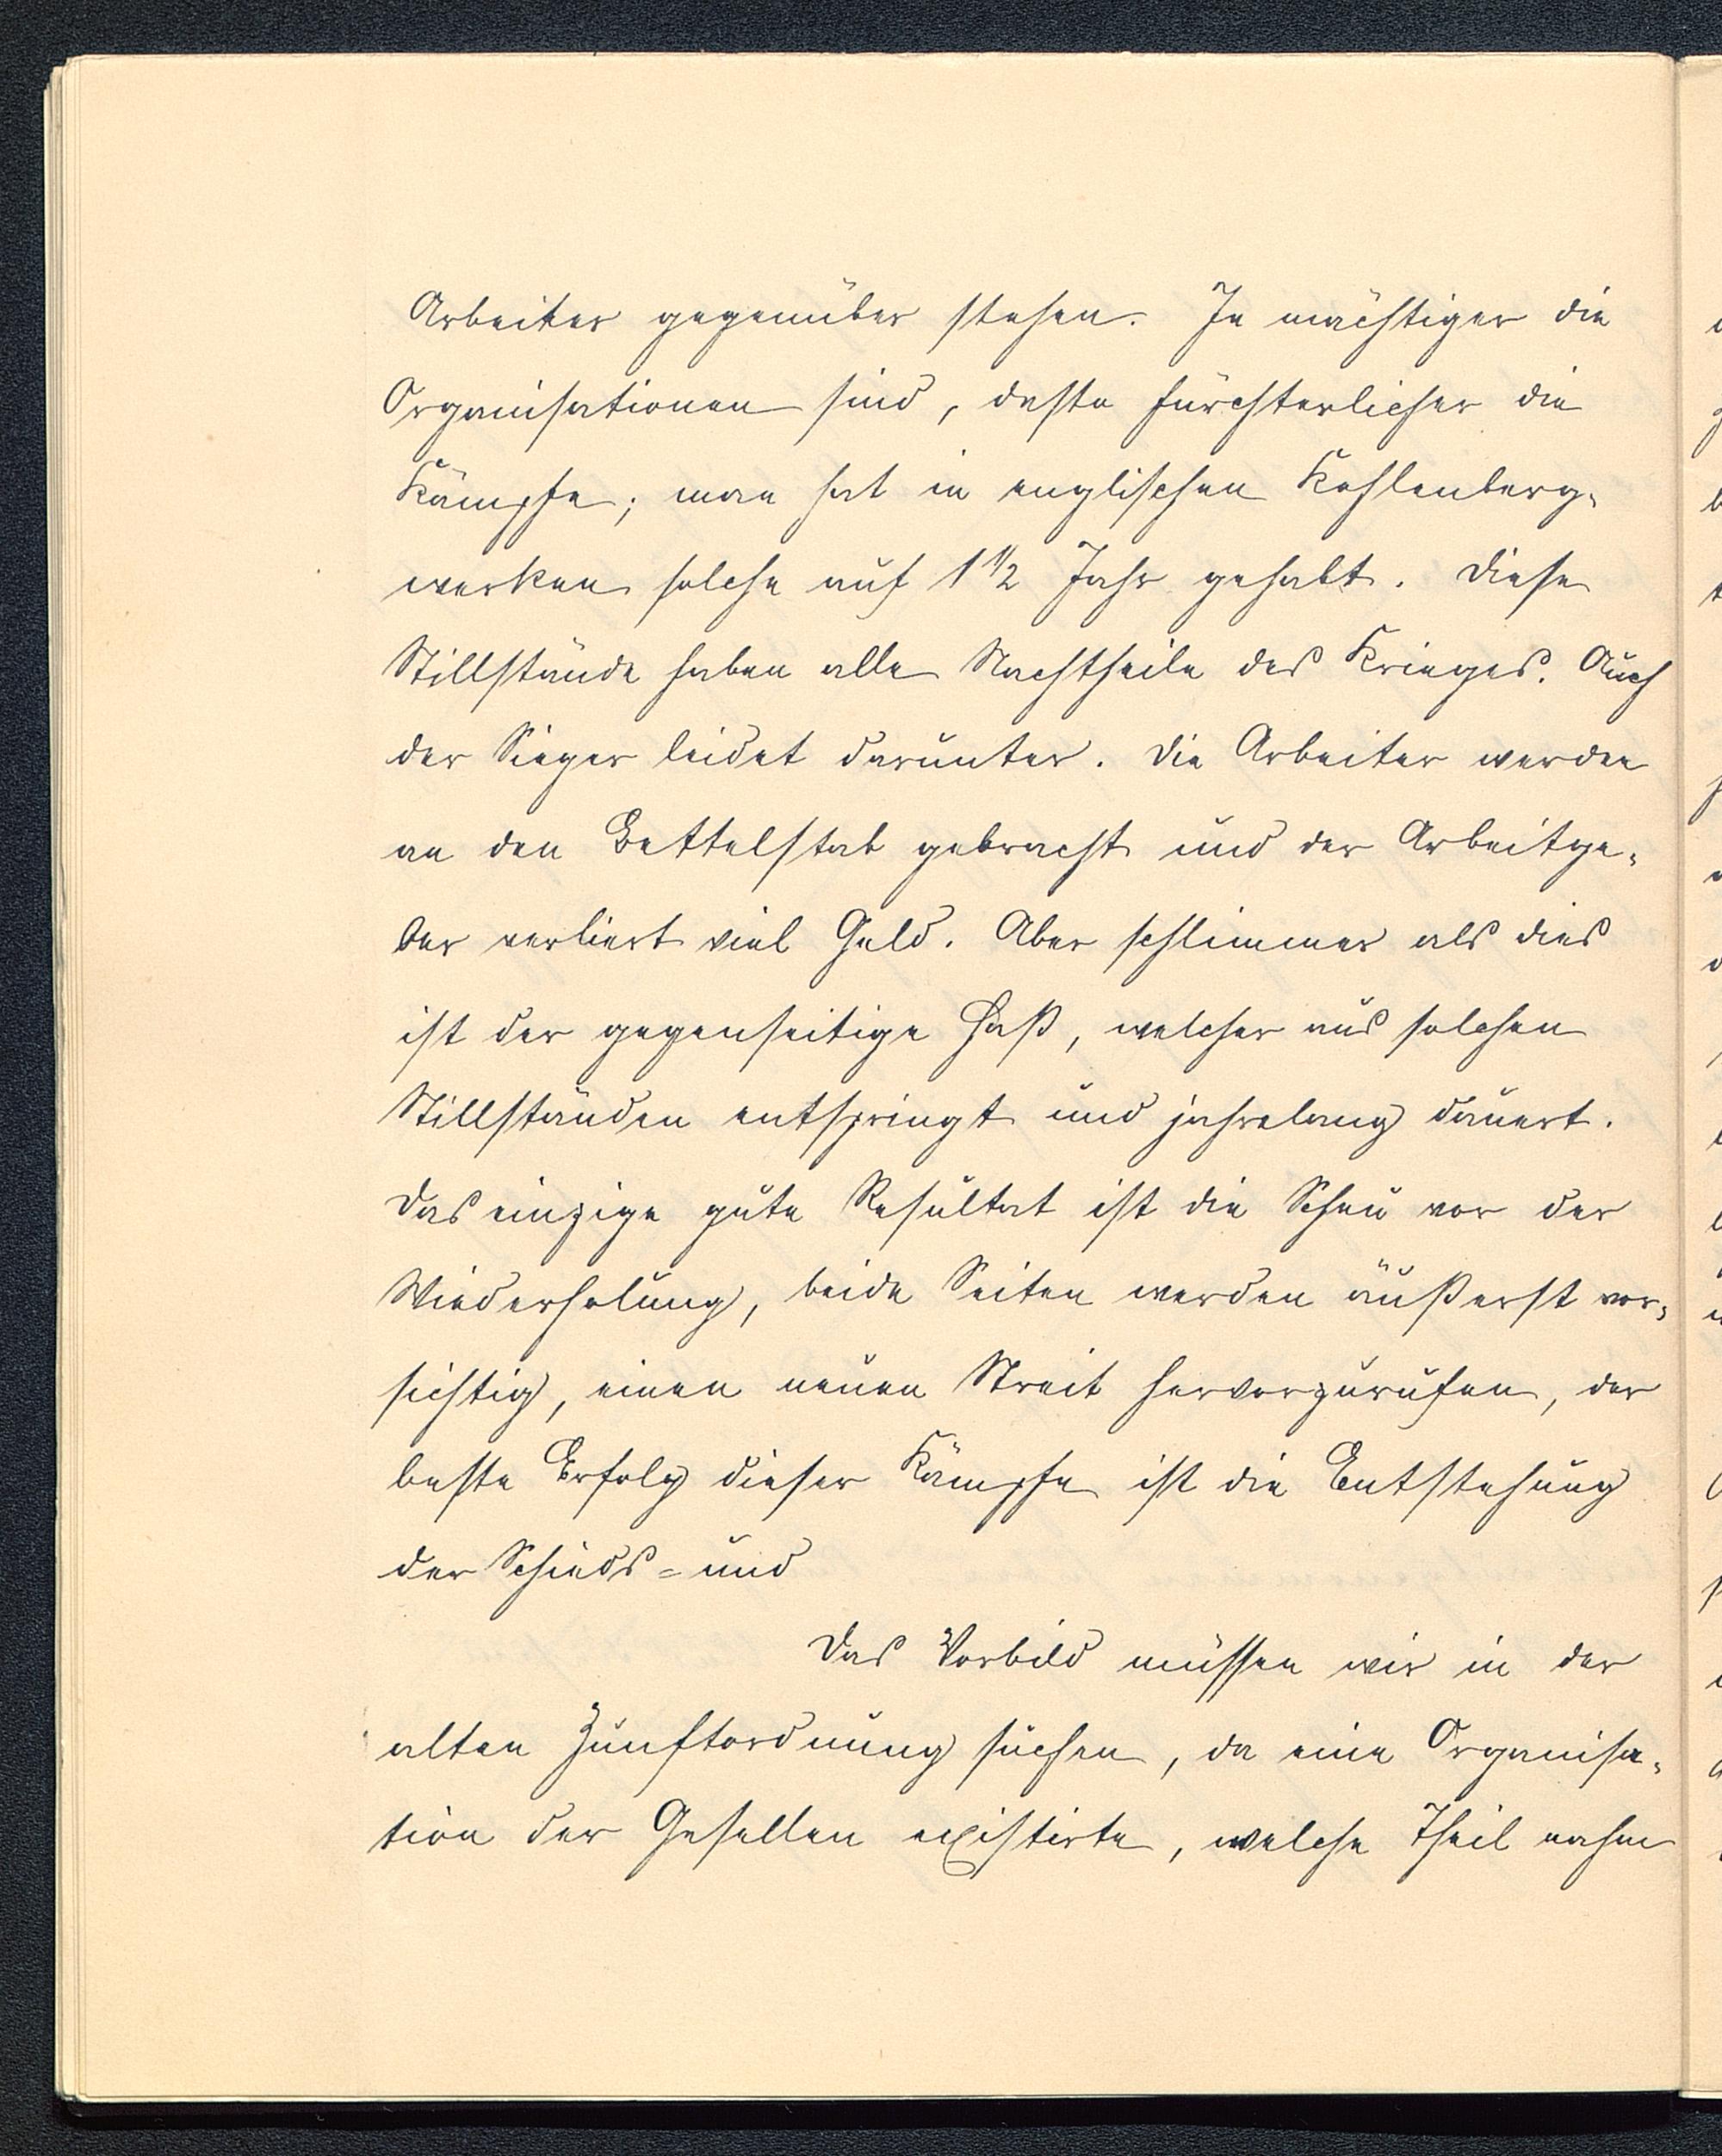 Arbeiter gegenüber stehen. Je mächtiger die
Organisationen sind, desto fürchterlicher die
Kämpfe; man hat in englischen Kohlenberg-
werken solche auf 1 1/2 Jahr gehabt. Diese
Stillstände haben alle Nachtheile des Krieges. Auch
der Sieger leidet darunter. Die Arbeiter werden
an den Bettelstab gebracht und der Arbeitge-
ber verliert viel Geld. Aber schlimmer als dies
ist der gegenseitige Haß, welcher aus solchen
Stillständen entspringt und jahrelang dauert.
Das einzige gute Resultat ist die Scheu vor der
Wiederholung, beide Seiten werden äußerst vor-
sichtig, einen neuen Streit hervorzurufen, der
beste Erfolg dieser Kämpfe ist die Entstehung
der Schieds- und
Das Vorbild müssen wir in der
alten Zunftordnung suchen, da eine Organisa-
tion der Gesellen existirte, welche Theil nahm